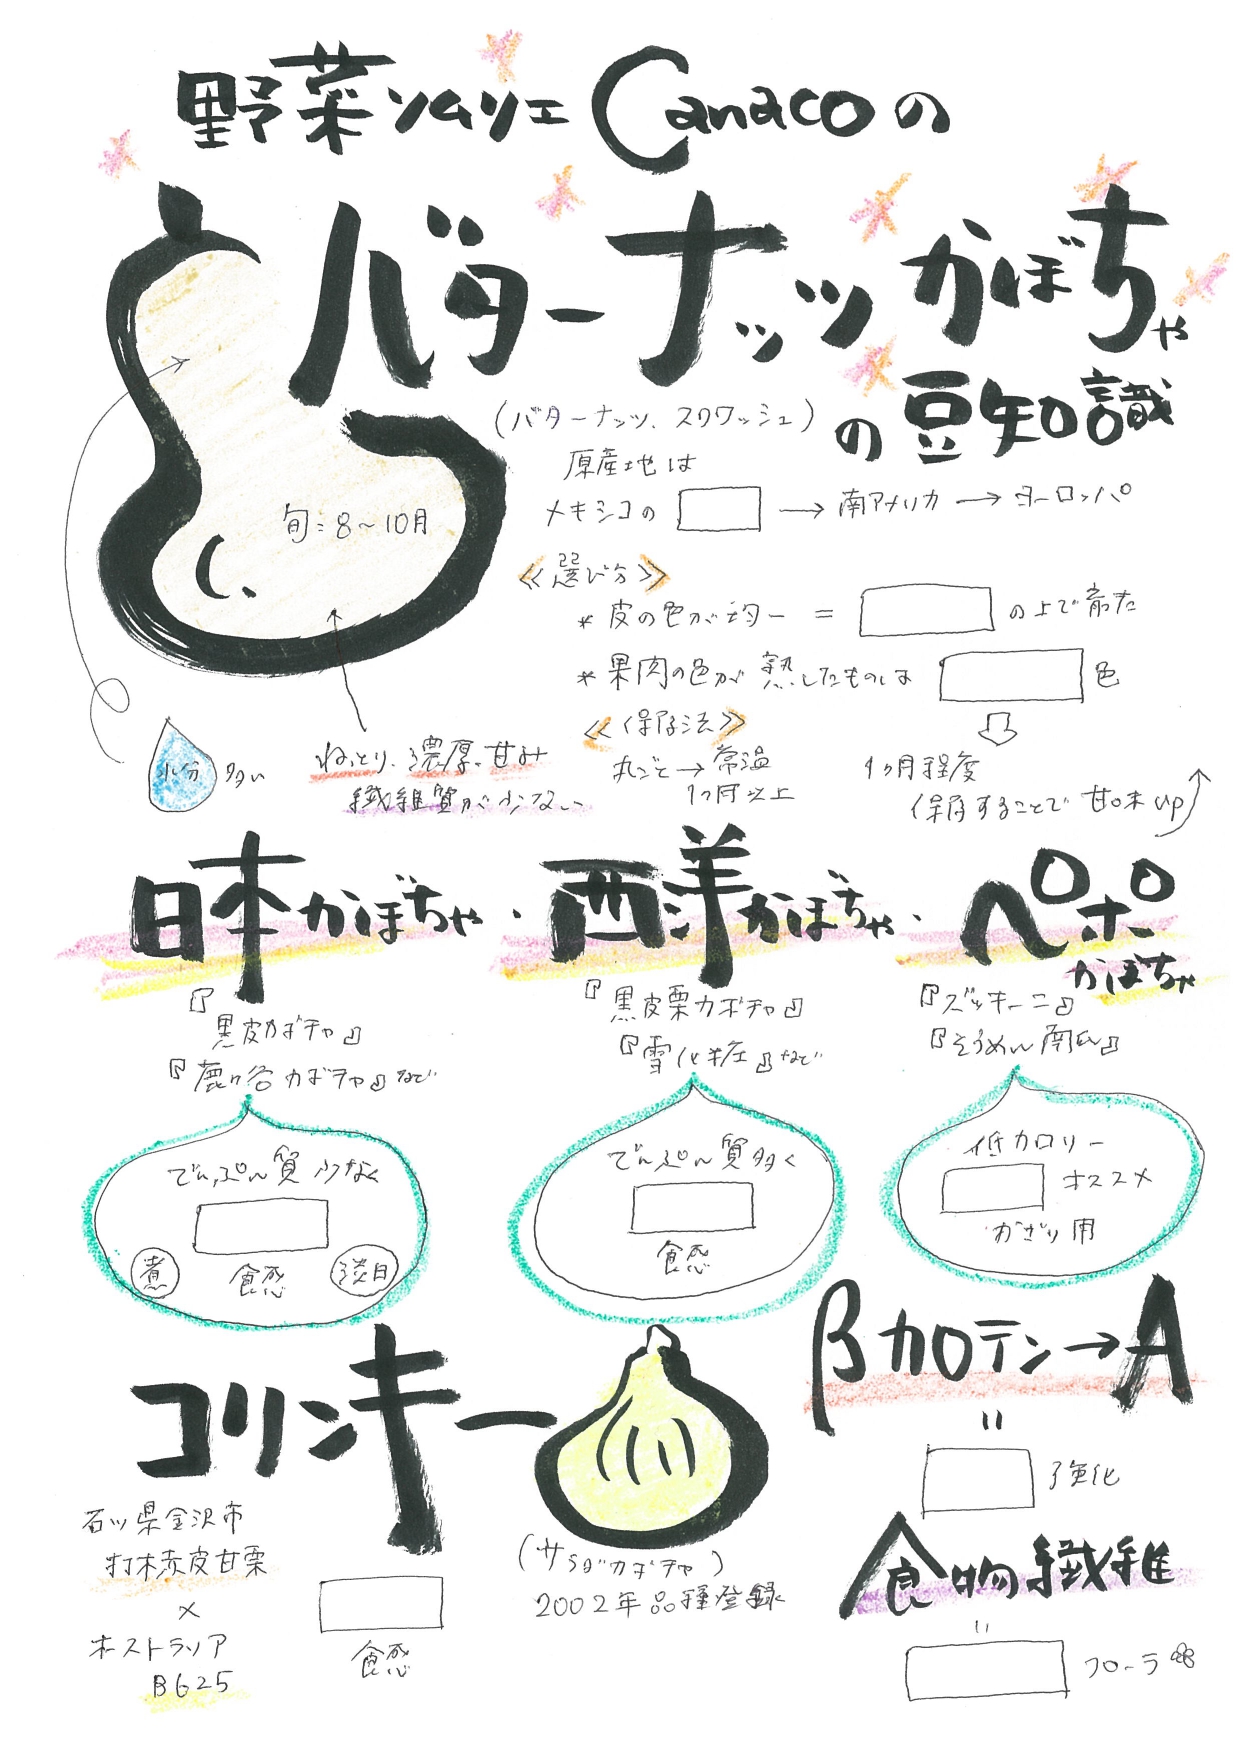 野菜ソムリエCanacoの
バターナッツかぼちゃ
の豆知識
(バターナッツ、スクワッシュ)
原産地は
メキシコの → 南アメリカ → ヨーロッパ
旬:8~10月
≪選び方≫
*皮の色が均一 = の上で育った
*果肉の色が熟したものは 色
1ヶ月程度
保存することで甘味up
≪保存法≫
丸ごと→常温
1ヶ月以上
水分 多い
ねっとり、濃厚、甘み
繊維質が少ない
日本かぼちゃ・西洋かぼちゃ・ペポかぼちゃ
『黒皮カボチャ』
『鹿ケ谷カボチャ』など
でんぷん質少なく
食感
煮
淡白
『黒皮栗カボチャ』
『雪化粧』など
でんぷん質多く
食感
『ズッキーニ』
『そうめん南瓜』
低カロリー
オススメ
かざり用
コリンキー
石川県金沢市
打木赤皮甘栗
×
オーストラリア
B625
食感
(サラダカボチャ)
2002年品種登録
βカロテン→A
=
強化
食物繊維
=
フローラ